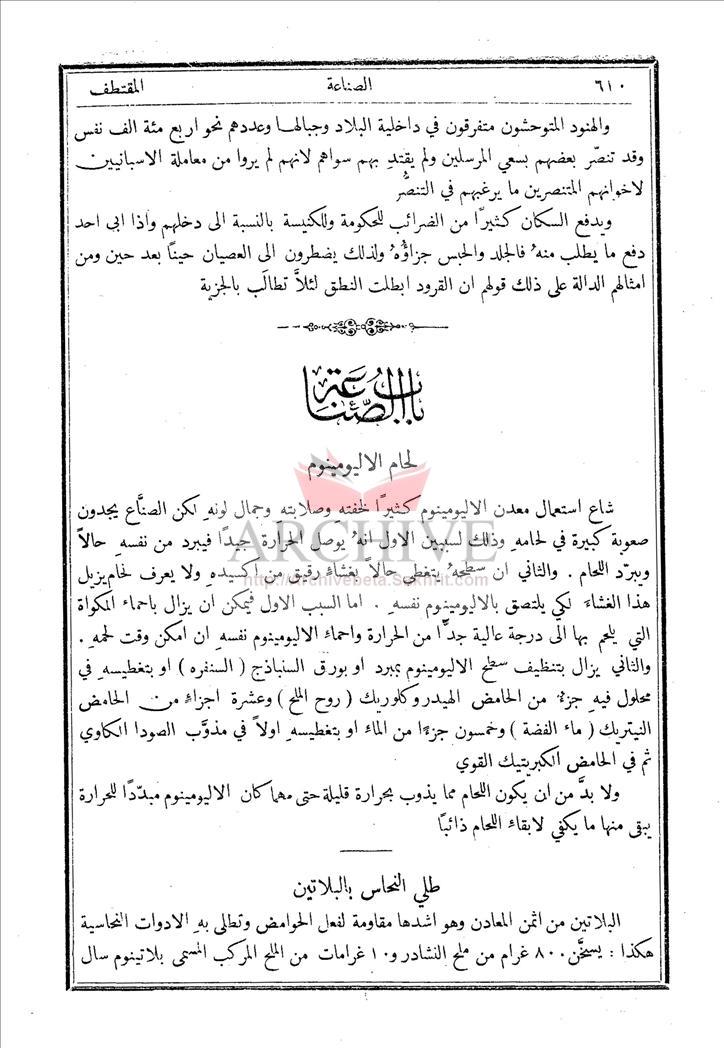 ٦١٠ الصناعة المقتطف
والهنود المتوحشون متفرقون في داخلية البلاد وجبالها وعددهم نحو اربع مئة الف نفس
وقد تنصّر بعضهم بسعي المرسلين ولم يقتدِ بهم سواهم لانهم لم يروا من معاملة الاسبانيين
لاخوانهم المتنصرين ما يرغبهم في التنصُّر
ويدفع السكان كثيرًا من الضرائب للحكومة وللكنيسة بالنسبة الى دخلهم واذا ابى احد
دفع ما يطلب منهُ فالجلد والحبس جزاؤُهُ ولذلك يضطرون الى العصيان حينًا بعد حين ومن
امثالهم الدالة على ذلك قولهم ان القرود ابطلت النطق لئلاَّ تطالَب بالجزية
باب الصناعة
لحام الاليومينوم
شاع استعمال معدن الاليومينوم كثيرًا لخفته وصلابته وجمال لونهِ لكن الصنَّاع يجدون
صعوبة كبيرة في لحامهِ وذلك لسببين الاول انهُ يوصل الحرارة جيدًا فيبرد من نفسهِ حالاً
ويبرّد اللحام . والثاني ان سطحهُ يتغطى حالاً بغشاءٍ رقيق من اكسيدهِ ولا يعرف لحام يزيل
هذا الغشاء لكي يلتصق بالاليومينوم نفسهِ . اما السبب الاول فيمكن ان يزال باحماء المكواة
التي يلحم بها الى درجة عالية جدًّا من الحرارة واحماء الاليومينوم نفسهِ ان امكن وقت لحمهِ .
والثاني يزال بتنظيف سطح الاليومينوم بمبرد او بورق السنباذج ( السنفره ) او بتغطيسهِ في
محلول فيهِ جزءٌ من الحامض الهيدروكلوريك ( روح الملح ) وعشرة اجزاءٍ من الحامض
النيتريك ( ماء الفضة ) وخمسون جزءًا من الماء او بتغطيسهِ اولاً في مذوَّب الصودا الكاوي
ثم في الحامض الكبريتيك القوي
ولا بدَّ من ان يكون اللحام مما يذوب بحرارة قليلة حتى مهما كان الاليومينوم مبدّدًا للحرارة
يبقى منها ما يكفي لابقاء اللحام ذائبًا
طلي النحاس بالبلاتين
البلاتين من اثمن المعادن وهو اشدها مقاومة لفعل الحوامض وتطلى بهِ الادوات النحاسية
هكذا : يسخَّن ٨٠٠ غرام من ملح النشادر و١٠ غرامات من الملح المركب المسمى بلاتينوم سال
ARCHIVE
http://Archivebeta.Sakhrit.com